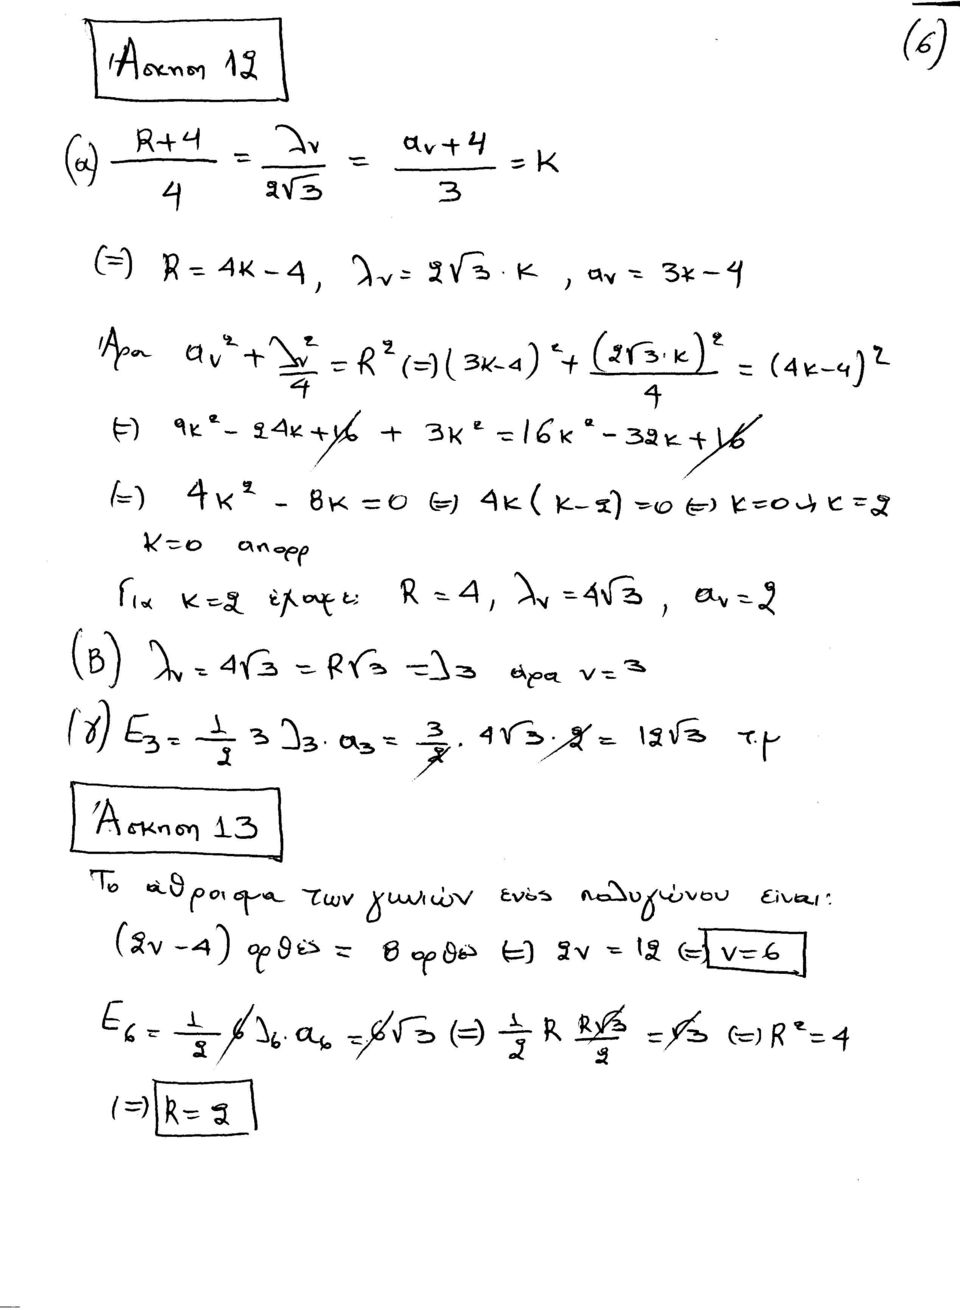 (6)
Άσκηση 12
(α) \frac{R+4}{4} = \frac{λν}{2√3} = \frac{αν+4}{3} = κ
(=) R = 4κ-4, λν = 2√3·κ, αν = 3κ-4
Άρα αν² + \frac{λν²}{4} = R² (=) (3κ-4)² + \frac{(2√3·κ)²}{4} = (4κ-4)²
(=) 9κ² - 24κ + 16 + 3κ² = 16κ² - 32κ + 16
(=) 4κ² - 8κ = 0 (=) 4κ(κ-2) = 0 (=) κ=0 ή κ=2
κ=0 απορρ
Για κ=2 έχουμε: R = 4, λν = 4√3, αν = 2
(Β) λν = 4√3 = R√3 = λ3 άρα ν=3
(γ) E3 = \frac{1}{2} 3 λ3·α3 = \frac{3}{2}·4√3·2 = 12√3 τ.μ
Άσκηση 13
Το άθροισμα των γωνιών ενός πολυγώνου είναι:
(2ν-4) ορθές = 8 ορθές (=) 2ν = 12 (=) ν=6
E6 = \frac{1}{2} 6 λ6·α6 = 6√3 (=) \frac{1}{2} R \frac{R√3}{2} = √3 (=) R² = 4
(=) R = 2